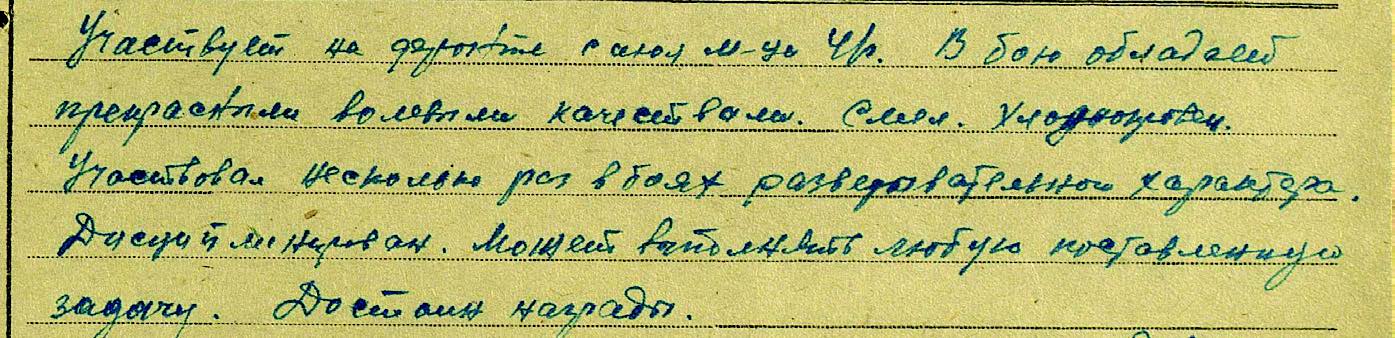 Участвует на фронте с июля м-ца 41г. В бою обладает
прекрасными волевыми качествами. Смел. Хладнокровен.
Участвовал несколько раз в боях разведывательного характера.
Дисциплинирован. Может выполнить любую поставленную
задачу. Достоин награды.